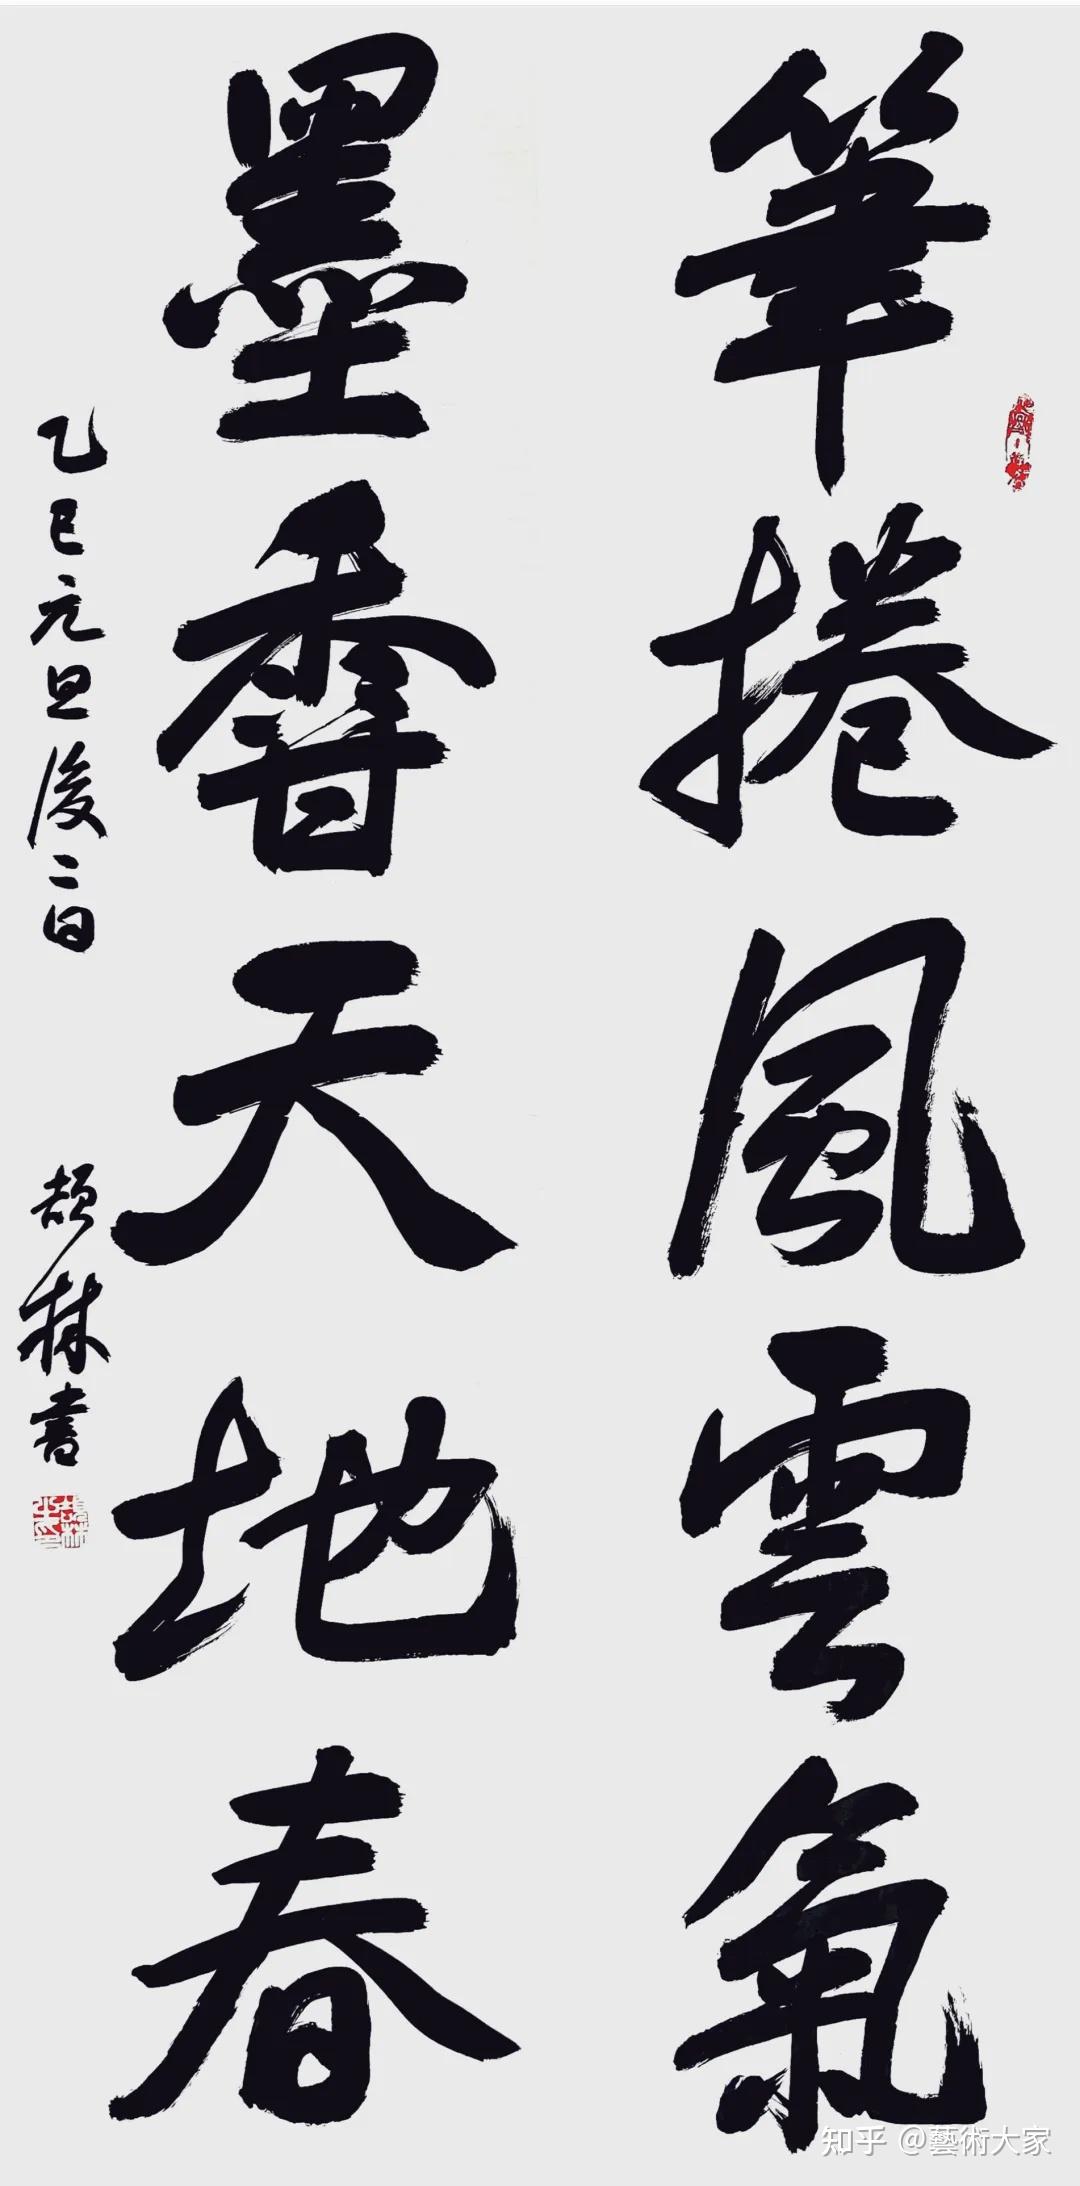 筆捲風雲氣
墨香天地春
乙巳元旦後二日
頡林書
知乎 @藝術大家